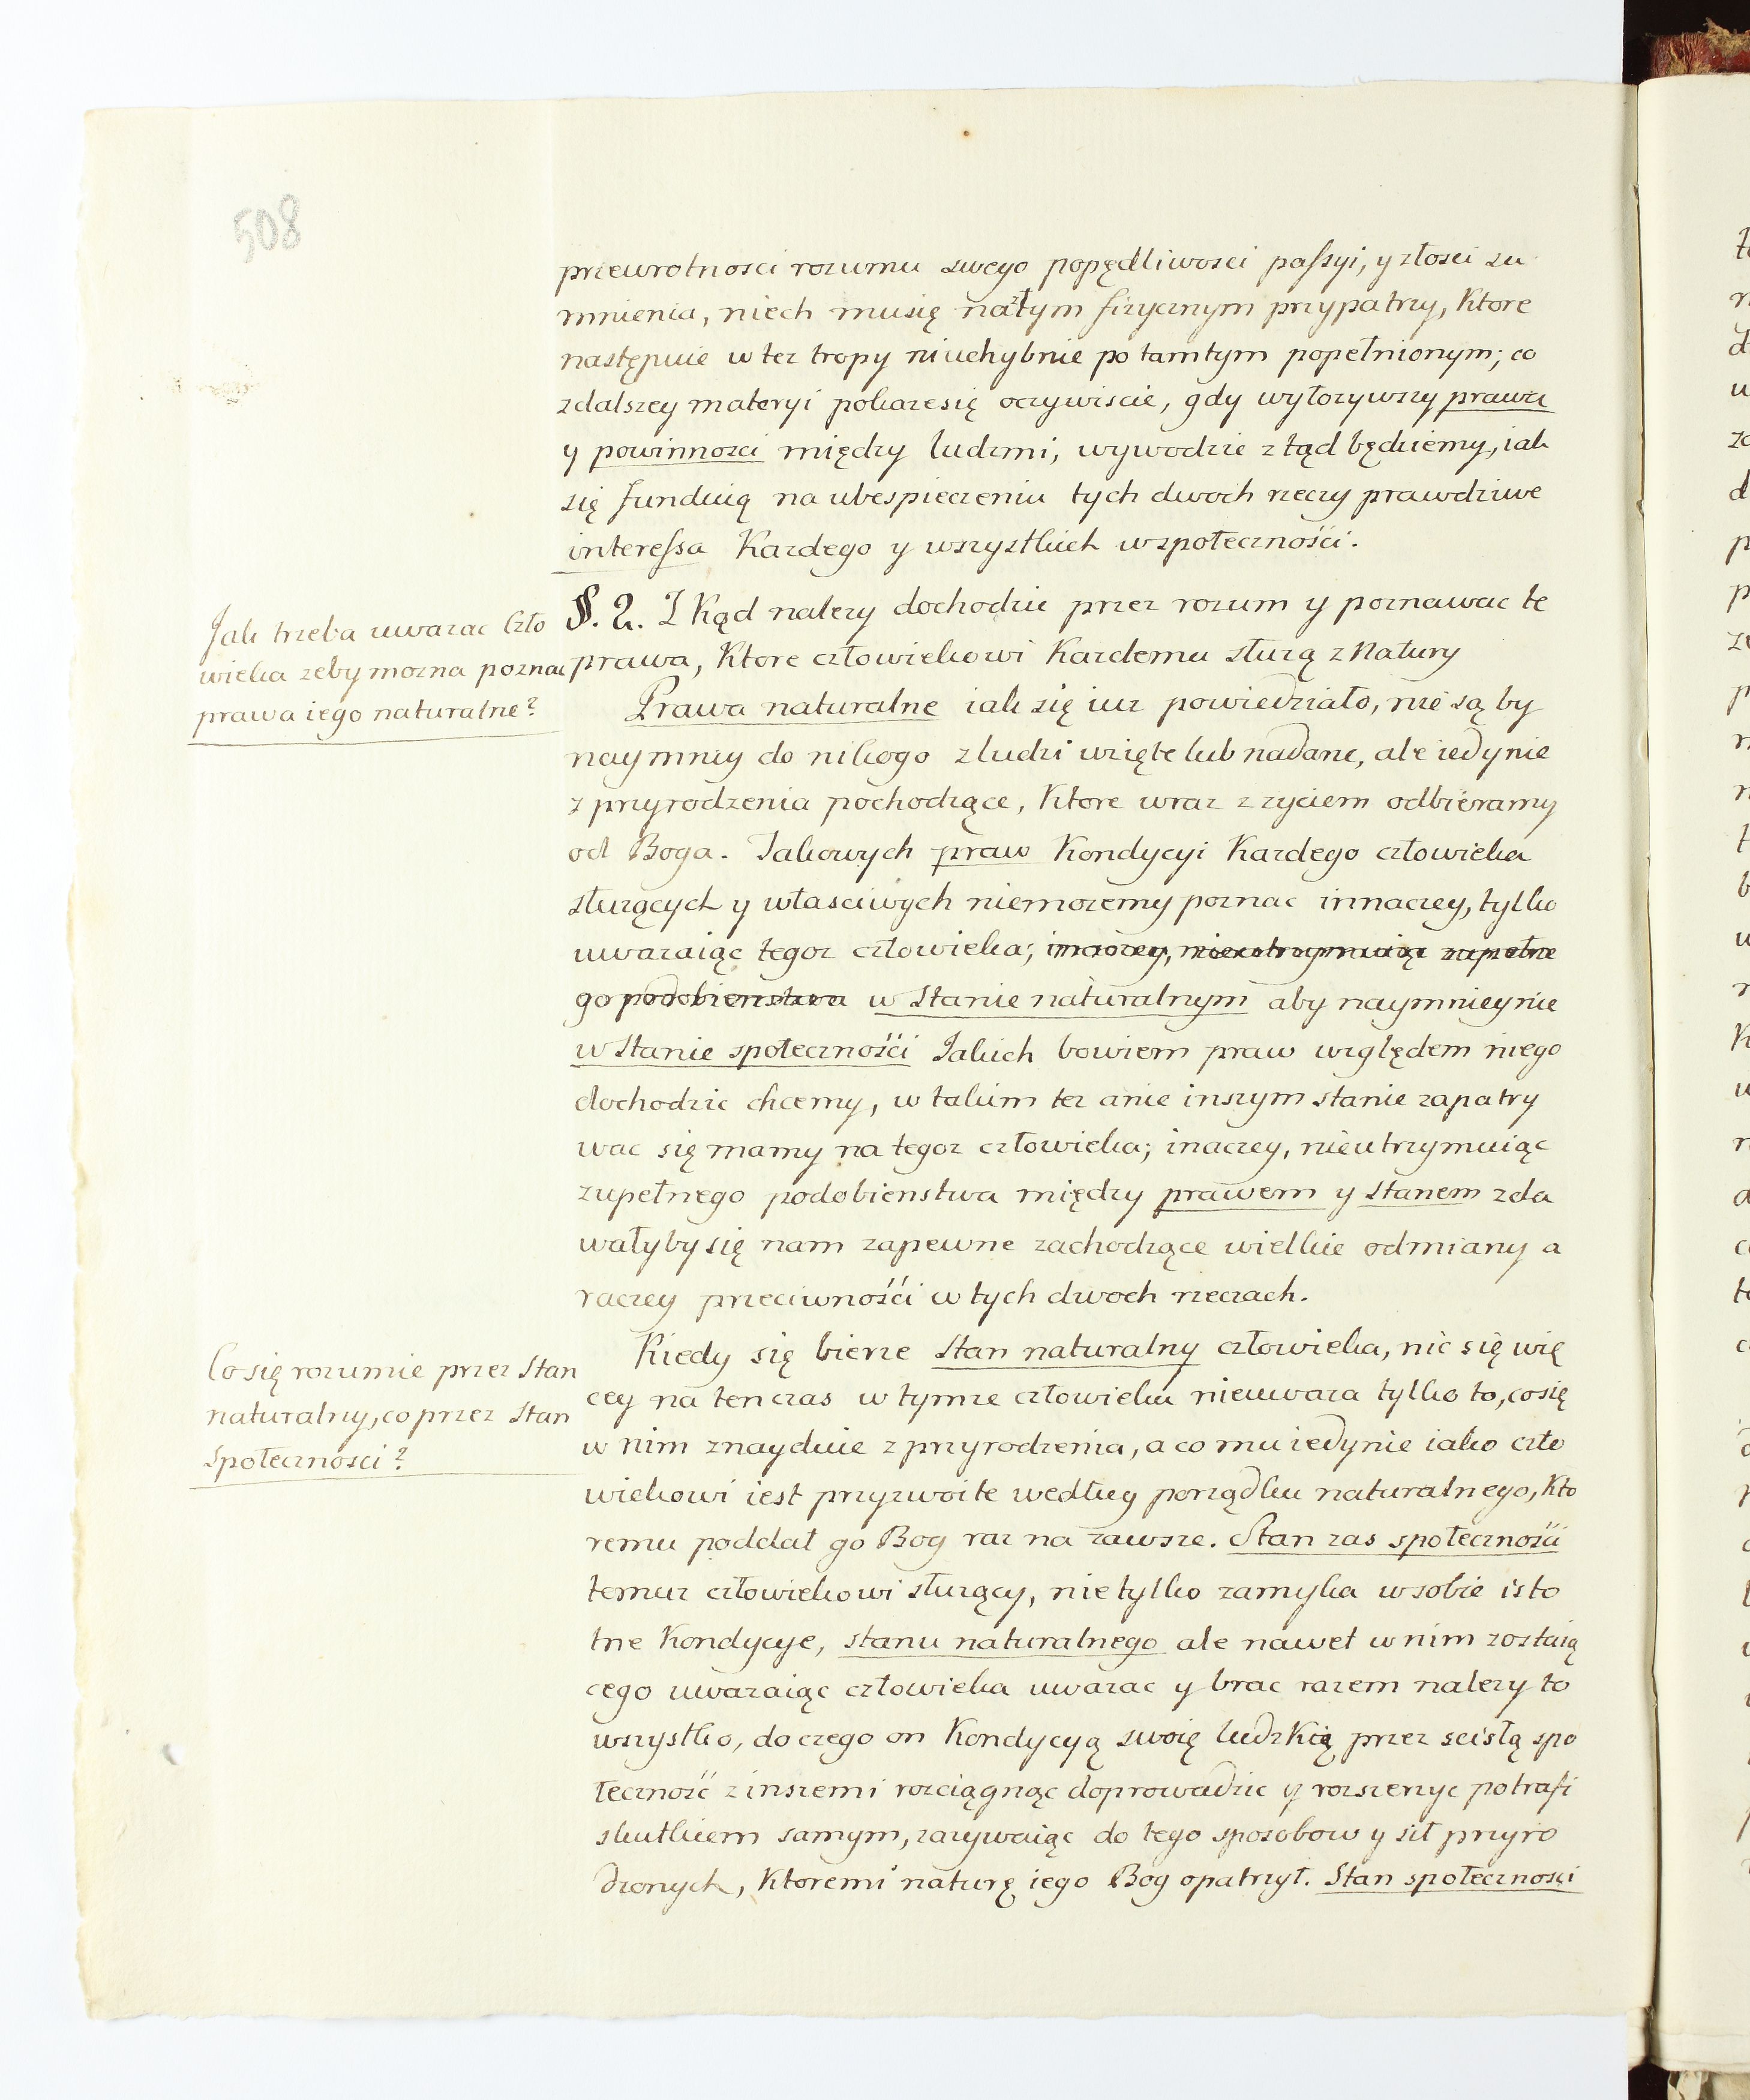 508
przewrotnosci rozumu swego popędliwosci passyi, y złosci su
mnienia, niech musię nazłym fizycznym przypatrzy, Ktore
następuie w tez tropy niuchybnie po tamtym popełnionym; co
zdalszey materyi pokazesię oczywiscie, gdy wyłozywszy prawa
y powinnosci między ludzmi, wywodzic ztąd będziemy, iak
się funduią na ubespieczeniu tych dwoch rzeczy prawdziwe
interessa Kazdego y wszystkich wspołecznośći.
Jak trzeba uwazac Czło
wieka zeby mozna poznac
prawa iego naturalne?
§. 2. Z Kąd nalezy dochodzic przez rozum y poznawac te
prawa, Ktore człowiekowi Kazdemu słuzą z Natury
Prawa naturalne iak się iuz powiedziało, nie są by
naymniey do nikogo zludzi wzięte lub nadane, ale iedynie
z przyrodzenia pochodzące, Ktore wraz z zyciem odbieramy
od Boga. Jakowych praw Kondycyi Kazdego człowieka
słuzących y własciwych niemozemy poznac innaczey, tylko
uwazaiąc tegoz człowieka; inaczey, nieutrzymuiąc zupełne
go podobienstwa w Stanie naturalnym aby naymnieynie
w Stanie społecznośći Jakich bowiem praw względem niego
dochodzic chcemy, w takim tez anie inszym stanie zapatry
wac się mamy na tegoz człowieka; inaczey, nieutrzymuiąc
zupełnego podobienstwa między prawem y Stanem zda
wałyby się nam zapewne zachodzące wielkie odmiany a
raczey przeciwnośći w tych dwoch rzeczach.
Co się rozumie przez Stan
naturalny, co przez Stan
Społecznosci?
Kiedy się bierze Stan naturalny człowieka, nic się wię
cey na ten czas w tymze człowieku nieuwaza tylko to, cosię
w nim znayduie z przyrodzenia, a co mu iedynie iako czło
wiekowi iest przyzwoite według porządku naturalnego, Kto
remu poddał go Bog raz na zawsze. Stan zas społecznośći
temuz człowiekowi słuzący, nie tylko zamyka w sobie isto
tne Kondycye, stanu naturalnego ale nawet w nim zostaią
cego uwazaiąc człowieka uwazac y brac razem nalezy to
wszystko, do czego on Kondycyą swoię ludzkią przez scisłą spo
łeczność z inszemi rozciągnąc doprowadzic y rozszerzyc potrafi
skutkiem samym, zazywaiąc do tego sposobow y sił przyro
dzonych, Ktoremi naturę iego Bog opatrzył. Stan społecznosci